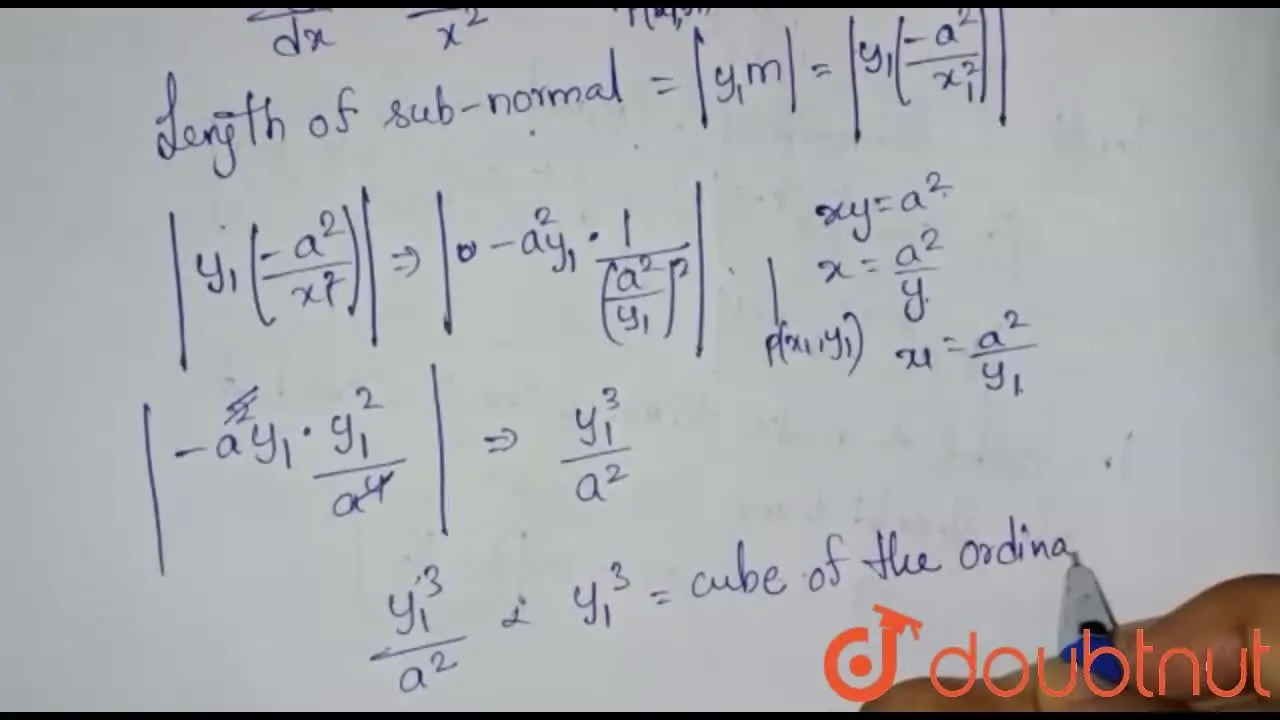 dx x²
Length of sub-normal = |y₁m| = |y₁(-a²/x₁²)|
|y₁(-a²/x₁²)| ⇒ |-a²y₁ · 1/(a²/y₁)²|
xy = a²
x = a²/y
P(x₁, y₁) x₁ = a²/y₁
|-a²y₁ · y₁²/a⁴| ⇒ y₁³/a²
y₁³/a² ∝ y₁³ = cube of the ordina
doubtnut